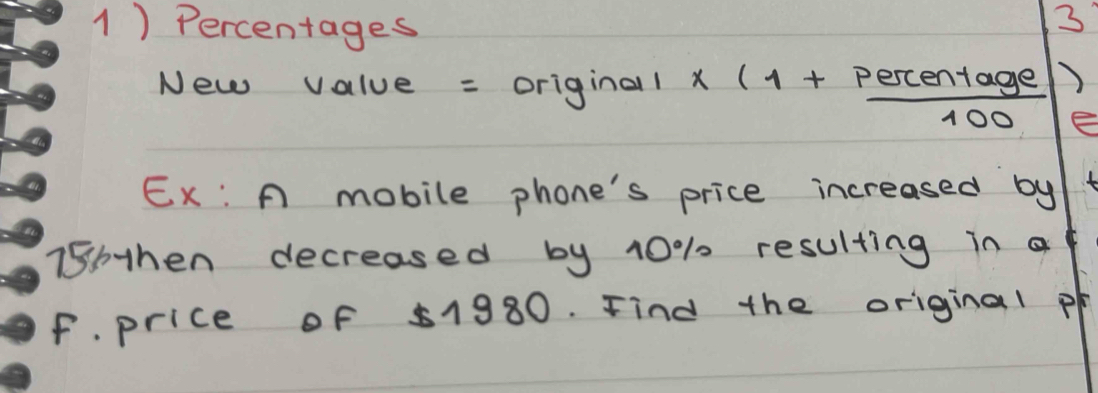 1) Percentages
3
New value = original x (1 + percentage/100)
Ex: A mobile phone's price increased by
then decreased by 10% resulting in a
F. price of $1980. Find the original